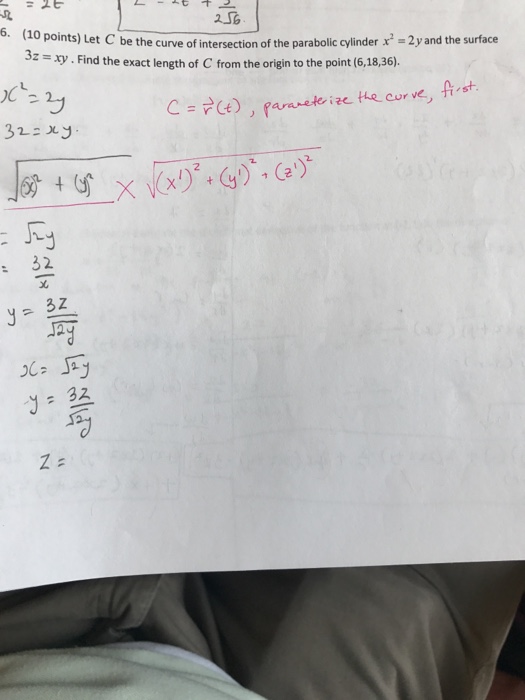 = 2t
2√6
6. (10 points) Let C be the curve of intersection of the parabolic cylinder x² = 2y and the surface
3z = xy. Find the exact length of C from the origin to the point (6,18,36).
x² = 2y
C = r⃗(t), parameterize the curve, first.
3z = xy.
√(x)² + (y)² × √(x')² + (y')² + (z')²
= √2y
= 3z/x
y = 3z/√2y
x = √2y
y = 3z/√2y
z =